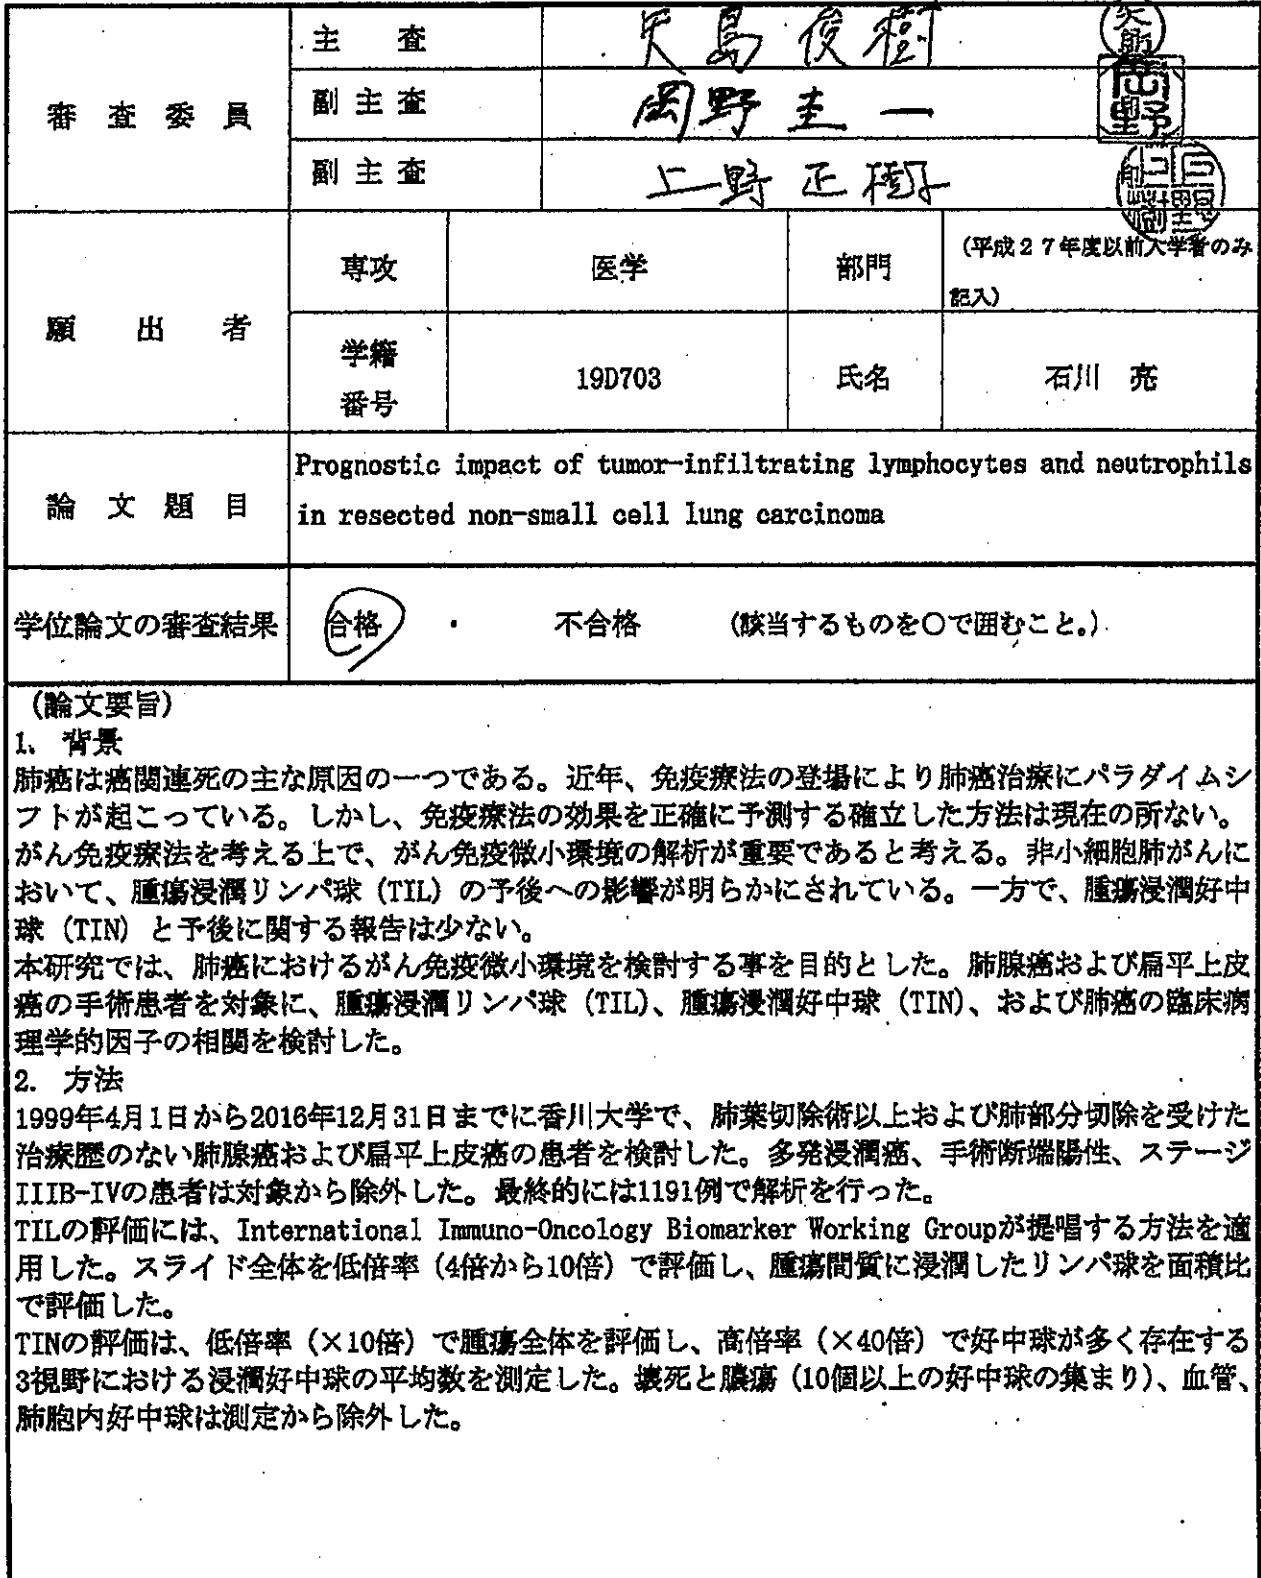 審査委員
主査 矢島俊樹
副主査 岡野圭一
岡野
副主査 上野正樹
願出者
専攻 医学 部門 (平成27年度以前入学者のみ
記入)
学籍
番号
19D703 氏名 石川 亮
論文題目
Prognostic impact of tumor-infiltrating lymphocytes and neutrophils
in resected non-small cell lung carcinoma
学位論文の審査結果 合格 ・ 不合格 (該当するものを○で囲むこと。)
(論文要旨)
1、背景
肺癌は癌関連死の主な原因の一つである。近年、免疫療法の登場により肺癌治療にパラダイムシ
フトが起こっている。しかし、免疫療法の効果を正確に予測する確立した方法は現在の所ない。
がん免疫療法を考える上で、がん免疫微小環境の解析が重要であると考える。非小細胞肺がんに
おいて、腫瘍浸潤リンパ球 (TIL) の予後への影響が明らかにされている。一方で、腫瘍浸潤好中
球 (TIN) と予後に関する報告は少ない。
本研究では、肺癌におけるがん免疫微小環境を検討する事を目的とした。肺腺癌および扁平上皮
癌の手術患者を対象に、腫瘍浸潤リンパ球 (TIL)、腫瘍浸潤好中球 (TIN)、および肺癌の臨床病
理学的因子の相関を検討した。
2. 方法
1999年4月1日から2016年12月31日までに香川大学で、肺葉切除術以上および肺部分切除を受けた
治療歴のない肺腺癌および扁平上皮癌の患者を検討した。多発浸潤癌、手術断端陽性、ステージ
IIIB-IVの患者は対象から除外した。最終的には1191例で解析を行った。
TILの評価には、International Immuno-Oncology Biomarker Working Groupが提唱する方法を適
用した。スライド全体を低倍率 (4倍から10倍) で評価し、腫瘍間質に浸潤したリンパ球を面積比
で評価した。
TINの評価は、低倍率 (×10倍) で腫瘍全体を評価し、高倍率 (×40倍) で好中球が多く存在する
3視野における浸潤好中球の平均数を測定した。壊死と膿瘍 (10個以上の好中球の集まり)、血管、
肺胞内好中球は測定から除外した。